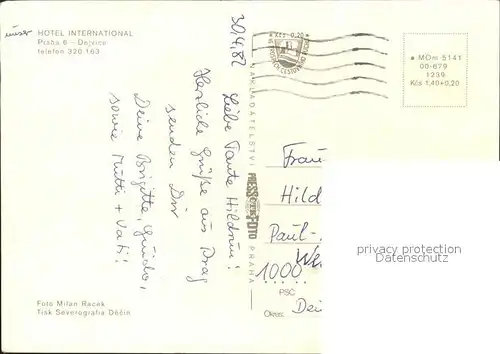 unser HOTEL INTERNATIONAL
Praha 6 - Dejvice
telefon 320 163
30.4.82
Liebe Tante Hildrun!
Herzliche Grüße aus Prag
senden Dir
Deine Brigitte, Guido,
sowie Mutti + Vati!
Foto Milan Racek
Tisk Severografia Děčín
NAKLADATELSTVÍ PRESSFOTO PRAHA
Kčs 0,20
* MOm 5141
00-679
1239
Kčs 1,40+0,20
Frau
Hild
Paul-
We
1000
PSČ
Okres: Dei
privacy protection
Datenschutz